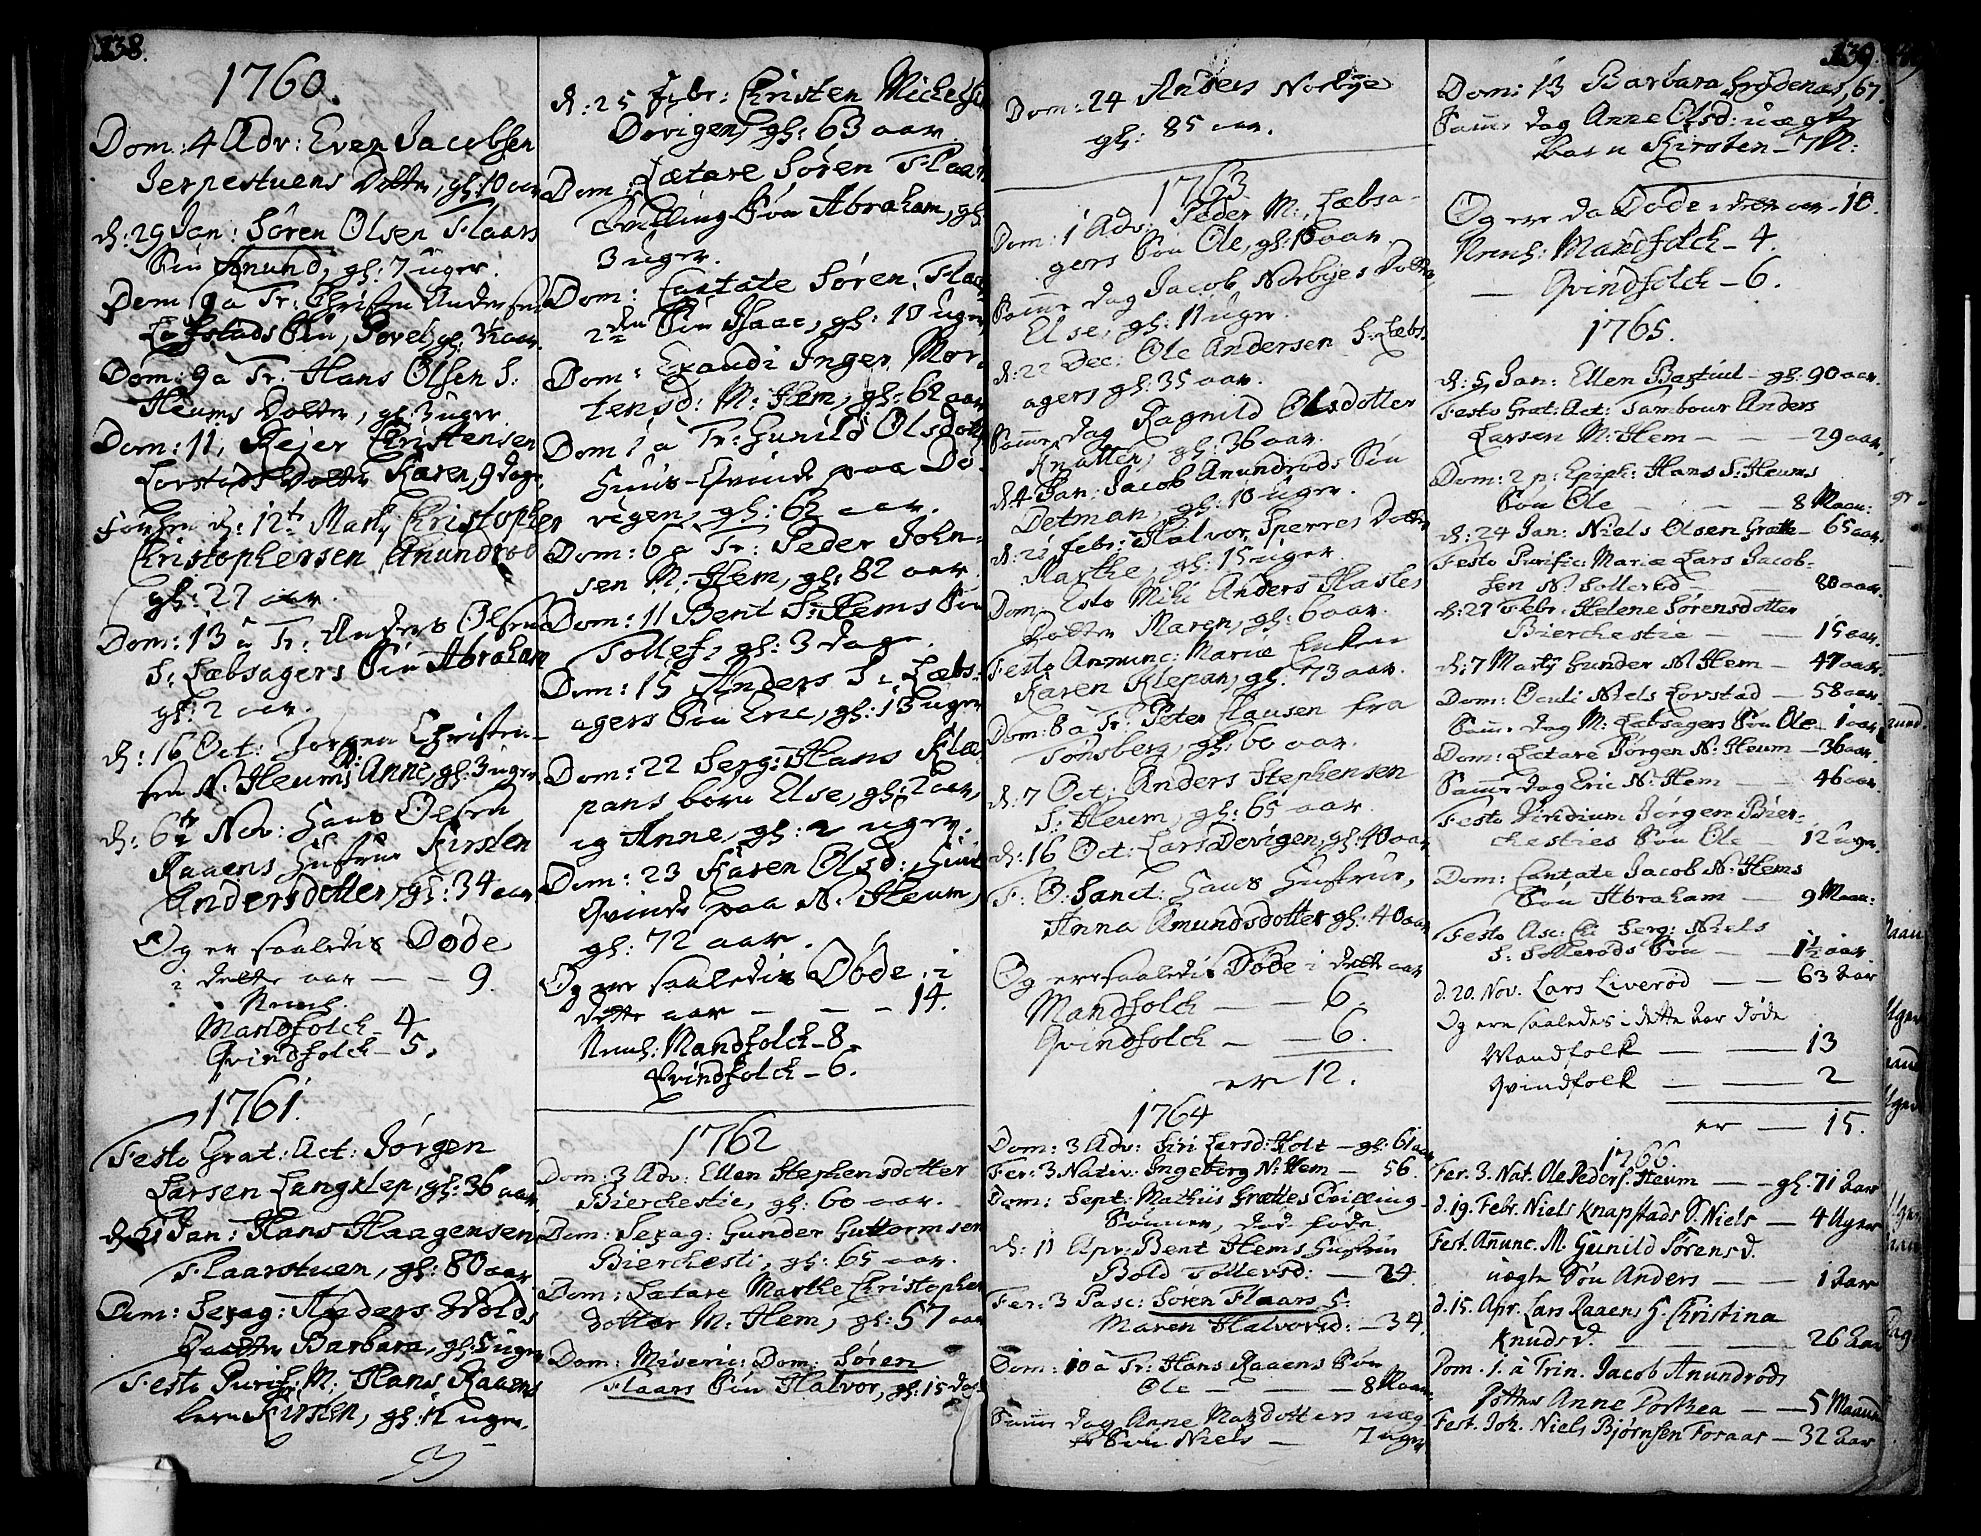 138.
1760.
Dom: 4 Adv: Even Jacobsen
Jerpestuens Dotter, gl: 10 aar
d: 29 Jan: Sören Olsen Flaars
Sön Anund, gl: 7 uger.
Dom 9 a Tr. Christen Andersen
Lofstads Sön, Povel, gl: 3½ aar.
Dom: 9 a Tr: Hans Olsen S:
Heums Dotter, gl: 3 uger
Dom: 11, Rejer Christensen
Lovstads Dotter Karen, 9 dage
d: 12te Martj Christopher
Christophersen Anundröd
gl: 27 aar.
Dom: 13 a Tr: Anders Olsens
S: Læbsagers Sön Abraham
gl: 2 aar.
d: 16 Oct: Jörgen Christen-
sen N. Heums D: Anne, gl: 3 uger
d: 6te Nov: Hans Olsen
Raaens Hustrue Kirsten
Andersdotter, gl: 34 aar
Og er saaledis Döde
i dette aar — — 9.
Neml.
Mandfolck - 4
Qvindfolck - 5.
1761.
Festo Grat: Act: Jörgen
Larsen Langslep, gl: 36 aar
d: 21 Jan: Hans Haagensen
Flaarstuen, gl: 80 aar
Dom: Sexag: Anders Holds
Dotter Barbara, gl: 5 uger
Festo Purif: M: Hans Raaens
barn Kirsten, gl: 12 uger.
d: 25 Febr: Christen Michelsen
Dövigen, gl: 63 aar.
Dom: Lætare Sören Flaars
Tvilling Sön Abraham, gl:
3 uger.
Dom: Cantate Sören Flaars
2den Sön Isaac, gl: 10 uger
Dom: Exaudi Inger Mor-
tensd: M: Hem, gl: 62 aar
Dom 1 a Tr: Gunild Olsdotter
Huus-Qvinde paa Dö-
vigen, gl: 62 aar.
Dom: 6 a Tr: Peder John-
sen M: Hem, gl: 82 aar
Dom: 11 Bent S: Hems Sön
Tollef, gl: 3 dage.
Dom: 15 Anders S: Læbs-
agers Sön Eric, gl: 13 uger
Dom: 22 Serg: Hans Klæ-
pans börn Else, gl: 2 aar,
ig Anne, gl: 2 uger.
Dom: 23 Karen Olsd: Huus
Qvinde paa N. Heum,
gl: 72 aar.
Og ere saaledis Döde i
dette aar — — — 14.
Neml: Mandfolck - 8.
Qvindfolck - 6.
1762
Dom: 3 Adv: Ellen Stephensdotter
Bierchestie, gl: 60 aar.
Dom: Sexag: Gunder Guttormsen
Bierchesti, gl: 65 aar.
Dom: Lætare Marthe Christopher
dotter M: Hem, gl: 57 aar
Dom: Miseric: Dom: Sören
Flaars Sön Halvor, gl: 15 dage
Dom: 24 Anders Norbye
gl: 85 aar.
1763
Dom: 1 Adv: Peder M: Læbsa-
gers Sön Ole, gl: 10 aar.
Samme dag Jacob Norbyes Dotter
Else, gl: 11 uger.
d: 22 Dec: Ole Andersen S: Læbs
agers gl: 35 aar.
Samme dag Ragnild Olsdotter
Knatten, gl: 36 aar.
d. 4 Jan: Jacob Anundröds Sön
Detman, gl: 10 uger.
d: 21 Febr: Halvor Sperres Dotter
Marthe, gl: 15 uger.
Dom: Esto Mihi Anders Hasles
Dotter Maren, gl: 6 aar.
Festo Annunc: Mariæ Enken
Karen Klepan, gl: 73 aar.
Dom: 8 a Tr: Peter Clausen fra
Tönsberg, gl: 60 aar.
d: 7 Oct: Anders Stephensen
S: Heum, gl: 65 aar.
d: 16 Oct: Lars Dövigen, gl: 40 aar
F: O: Sanct: Hans Hustrue,
Anna Amundsdotter gl: 40 aar
Og ere saaledis Döde i dette aar
Mandfolck — — 6.
Qvindfolck — — 6.
er 12.
1764
Dom: 3 Adv: Siri Larsd: Holt — gl: 61 aar
Fer: 3 Nativ: Ingeborg N: Hem — 56.
Dom: Sept: Mathiis Grættes Tvilling
Sönner, död föde
d: 11 Apr: Bent Hems Hustrue
Bold Tollevsd: — 24.
Fer: 3 Pasc: Sören Flaars S.
Maren Halvorsd: — 34.
Dom: 10 a Tr: Hans Raaens Sön
Ole — — — 8 Maan:
Samme dag Anne Matzdotters uæg
te Sön Niels — 7 uger
139.
Dom: 13 Barbara Frydenas, 67.
Samme dag Anne Olsd: uægte
barn Kirsten — 7 M:
Og ere da Döde i dette aar - 10.
Neml: Mandfolck - 4.
— Qvindfolck - 6.
1765.
d: 5 Jan: Ellen Bastiul — gl: 90 aar.
Festo Grat: Act: Tambour Anders
Larsen M: Hem — — — 29 aar.
Dom: 2 p: Epiph: Hans S: Heums
Sön Ole — — — 8 Maan:
d: 24 Jan: Niels Olsen Grætte — 65 aar
Festo Purific: Mariæ Lars Jacob-
sen N. Solleröd — — 80 aar.
d: 27 Febr: Helene Sörensdotter
Bierchestie — — 15 aar.
d: 7 Martj Gunder N Hem — 47 aar.
Dom: Oculi Niels Lovstad — 58 aar.
Samme dag M: Læbsagers Sön Ole 1 aar
Dom: Lætare Jörgen N: Heum — 36 aar.
Samme dag Eric N: Hem — — 46 aar.
Festo Viridium Jörgen Bier-
chesties Sön Ole — 12 uger.
Dom: Cantate Jacob N: Hems
Sön Abraham — 9 Maan:
Festo Asc: Serg: Niels
S: Solleröds Sön — — 1½ aar.
d. 20. Nov. Lars Liveröd — — 63 Aar
Og ere saaledes i dette Aar döde
Mandfolk — — 13
Qvindfolk — — 2
er — 15.
1766.
Fer. 3. Nat. Ole Peders. Heum — — gl. 71 Aar
d. 19. Febr. Niels Knapstads S. Niels — 4 Uger
Fest. Anunc. M. Gunild Sörensd.
uægte Sön Anders — — 1 Aar
d. 15. Apr. Lars Raaens H. Christina
Knudsd. — — — 26 Aar
Dom. 1. a Trin. Jacob Anundröds
Dotter Anne Dorthea — — 5 Maan
Fest. Joh. Niels Björnsen Foraas — 32 Aar